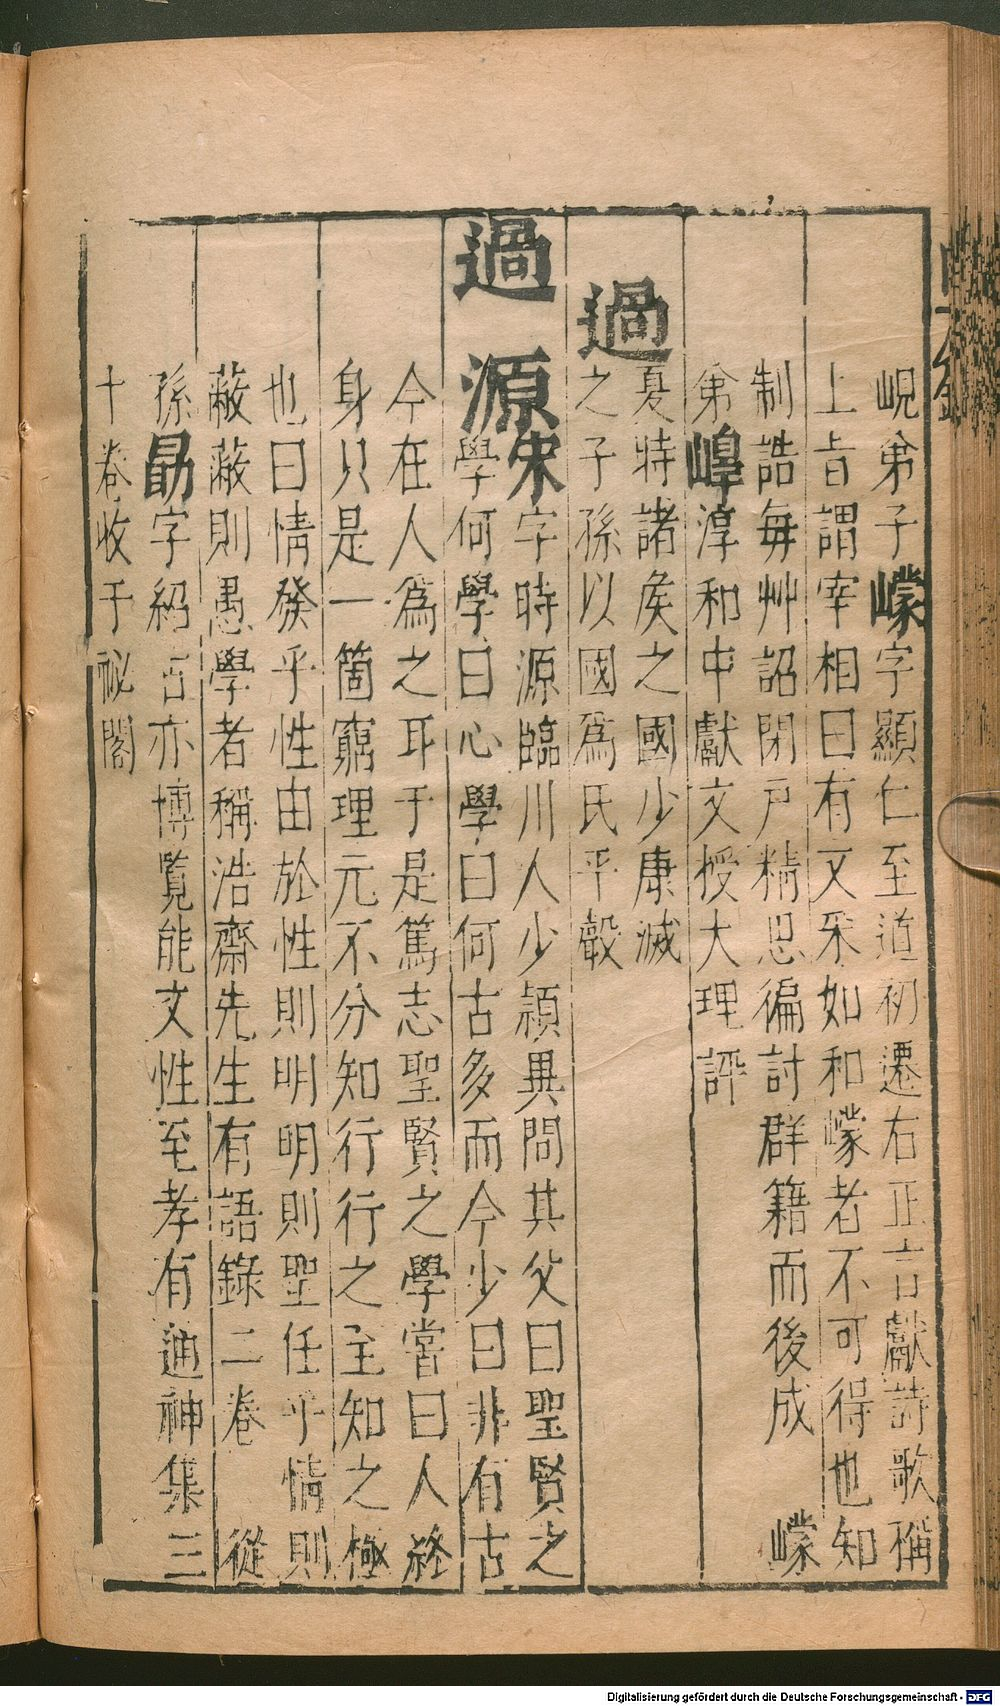 峴弟子㠓字顯仁至道初遷右正言獻詩歌稱
上旨謂宰相曰有文采如和㠓者不可得也知
制誥每艸詔閉戶精思徧討群籍而後成 㠓
弟㠓淳和中獻文授大理評
過
夏時諸侯之國少康滅
之子孫以國爲氏平聲
過源宋字時源臨川人少穎異問其父曰聖賢之
學何學曰心學曰何古多而今少曰非有古
今在人爲之耳于是篤志聖賢之學嘗曰人終
身只是一箇窮理元不分知行行之至知之極
也曰情發乎性由於性則明明則聖任乎情則
蔽蔽則愚學者稱浩齋先生有語錄二卷 從
孫勗字紹古亦博覽能文性至孝有迪神集三
十卷收于祕閣
Digitalisierung gefördert durch die Deutsche Forschungsgemeinschaft - DFG